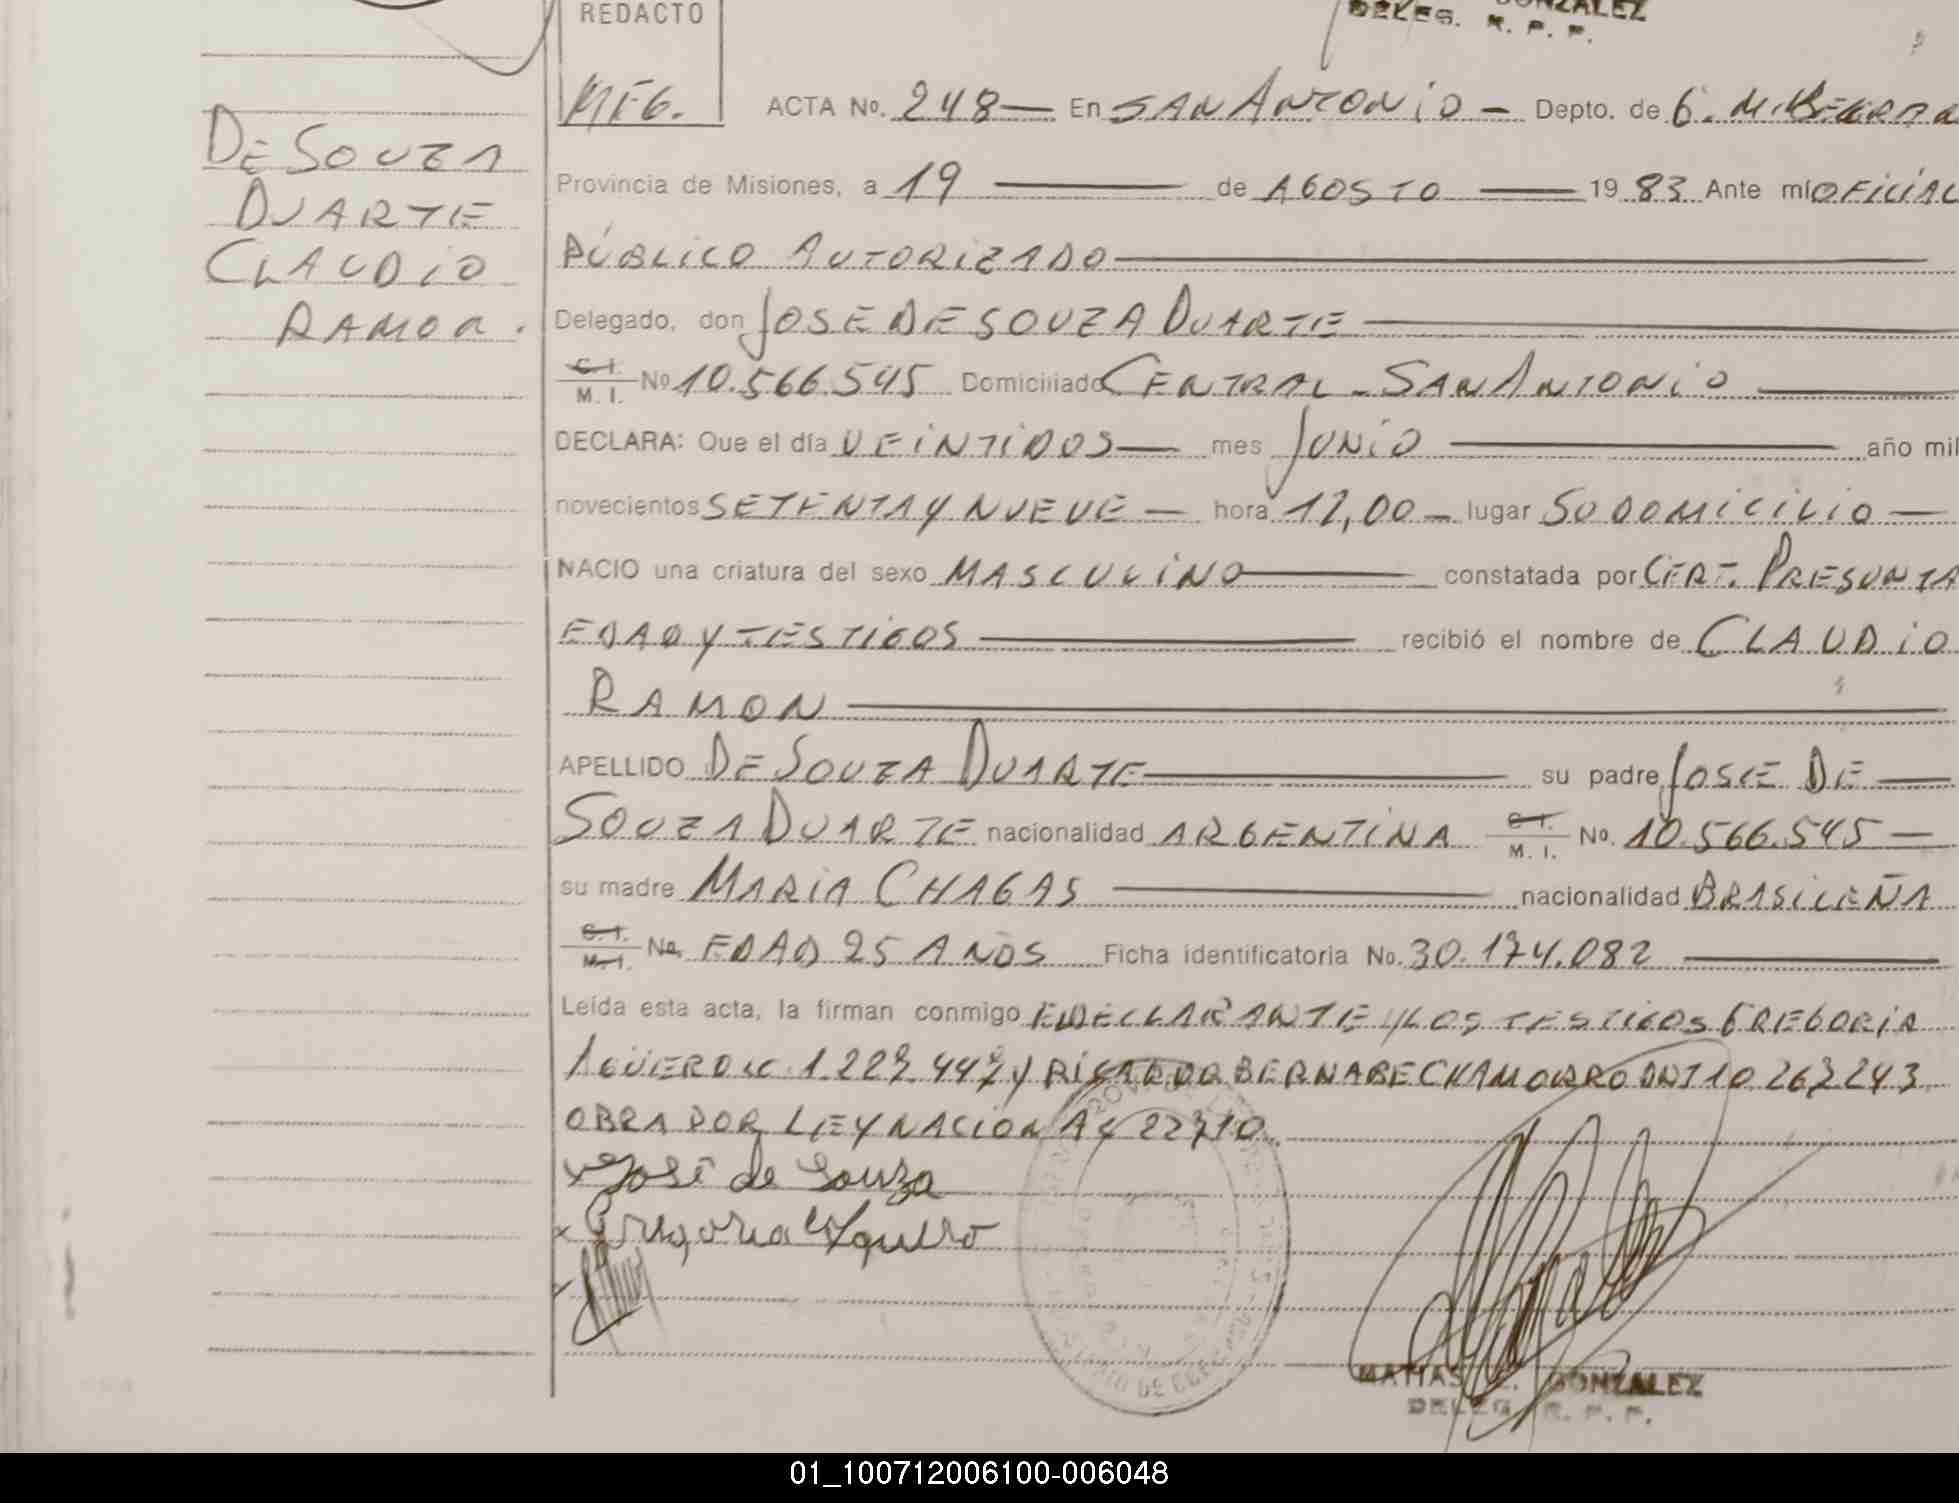 REDACTO
GONZALEZ
DELEG. R. P. P.
MEG.
ACTA No. 248 — En SAN ANTONIO — Depto. de G. M. BELGRANO
DE SOUZA
DUARTE
CLAUDIO
RAMON.
Provincia de Misiones, a 19 — de AGOSTO — 1983 Ante mí OFICIAL
PÚBLICO AUTORIZADO —
Delegado, don JOSE DE SOUZA DUARTE —
C. I. / M. I. No 10.566.545 Domiciliado CENTRAL - SAN ANTONIO —
DECLARA: Que el día VEINTIDOS — mes JUNIO — año mil
novecientos SETENTA Y NUEVE — hora 12,00 — lugar SU DOMICILIO —
NACIO una criatura del sexo MASCULINO — constatada por CERT. PRESUNTA
EDAD Y TESTIGOS — recibió el nombre de CLAUDIO
RAMON —
APELLIDO DE SOUZA DUARTE — su padre JOSE DE —
SOUZA DUARTE nacionalidad ARGENTINA C. I. / M. I. No. 10.566.545 —
su madre MARIA CHAGAS — nacionalidad BRASILEÑA
C. I. / M. I. No. EDAD 25 AÑOS Ficha identificatoria No. 30.174.082 —
Leída esta acta, la firman conmigo EL DECLARANTE Y LOS TESTIGOS GREGORIA
AGÜERO LC 1.227.447 Y RICARDO BERNABE CHAMORRO DNI 10.267.243
OBRADO POR LEY NACIONAL 22710
x José de Souza
x Gregoria Aguero
MATIAS GONZALEZ
DELEG. R. P. P.
01_100712006100-006048